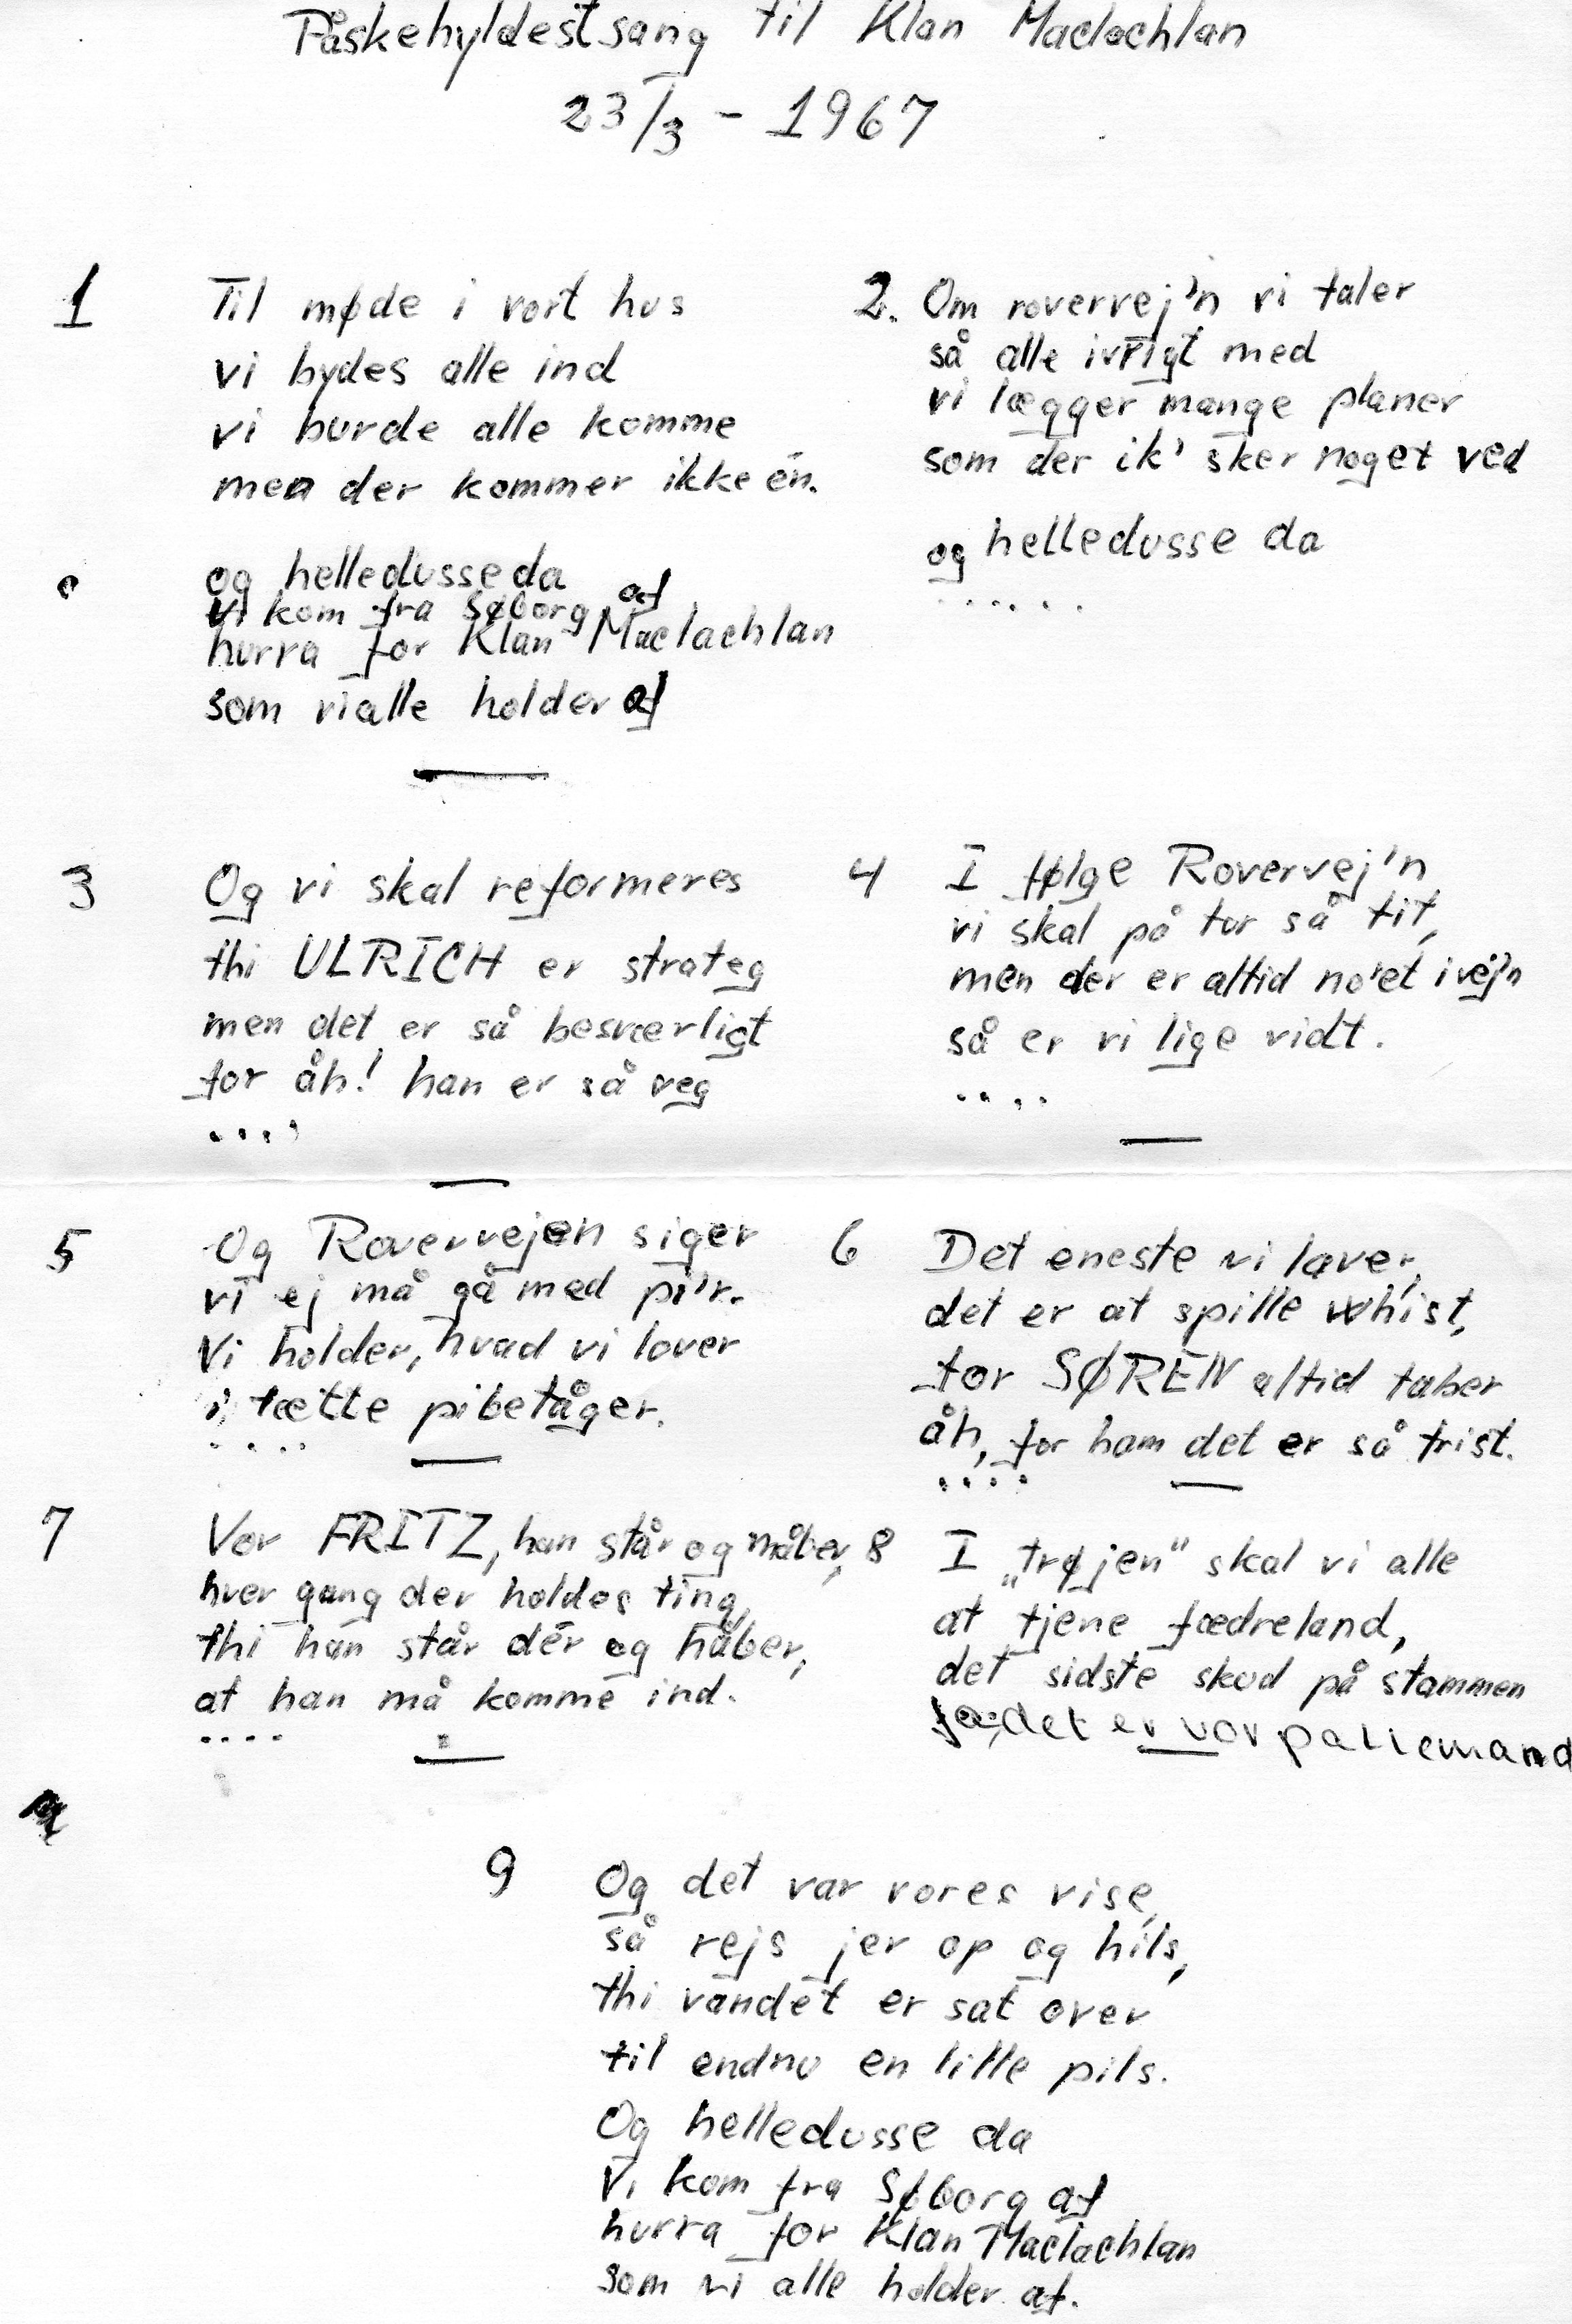 Påskehyldestsang til Klan Maclachlan
23/3 - 1967
1
Til møde i vort hus
vi bydes alle ind
vi burde alle komme
men der kommer ikke én.
og helledusse da
Vi kom fra Søborg af
hurra for Klan Maclachlan
som vi alle holder af
2. Om rovervej'n vi taler
så alle ivrigt med
vi lægger mange planer
som der ik' sker noget ved
og helledusse da
......
3
Og vi skal reformeres
thi ULRICH er strateg
men det er så besværligt
for åh! han er så veg
....
4
I følge Rovervej'n
vi skal på tur så tit,
men der er altid no'et i vej'n
så er vi lige vidt.
....
5
Og Rovervejen siger
vi ej må gå med pi'r.
Vi holder, hvad vi lover
i tætte pibetåger.
....
6
Det eneste vi laver,
det er at spille whist,
for SØREN altid taber
åh, for ham det er så trist.
....
7
Vor FRITZ, han står og måber,
hver gang der holdes ting,
thi han står dér og håber,
at han må komme ind.
....
8
I „trøjen" skal vi alle
at tjene fædreland,
det sidste skud på stammen
ja, det er vor pallemand
9
Og det var vores vise,
så rejs jer op og hils,
thi vandet er sat over
til endnu en lille pils.
Og helledusse da
Vi kom fra Søborg af
hurra for Klan Maclachlan
som vi alle holder af.